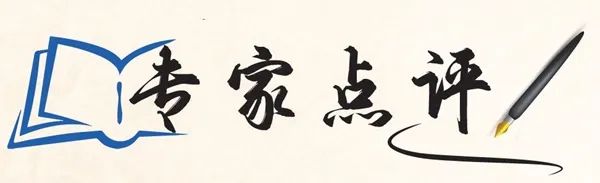 专家点评